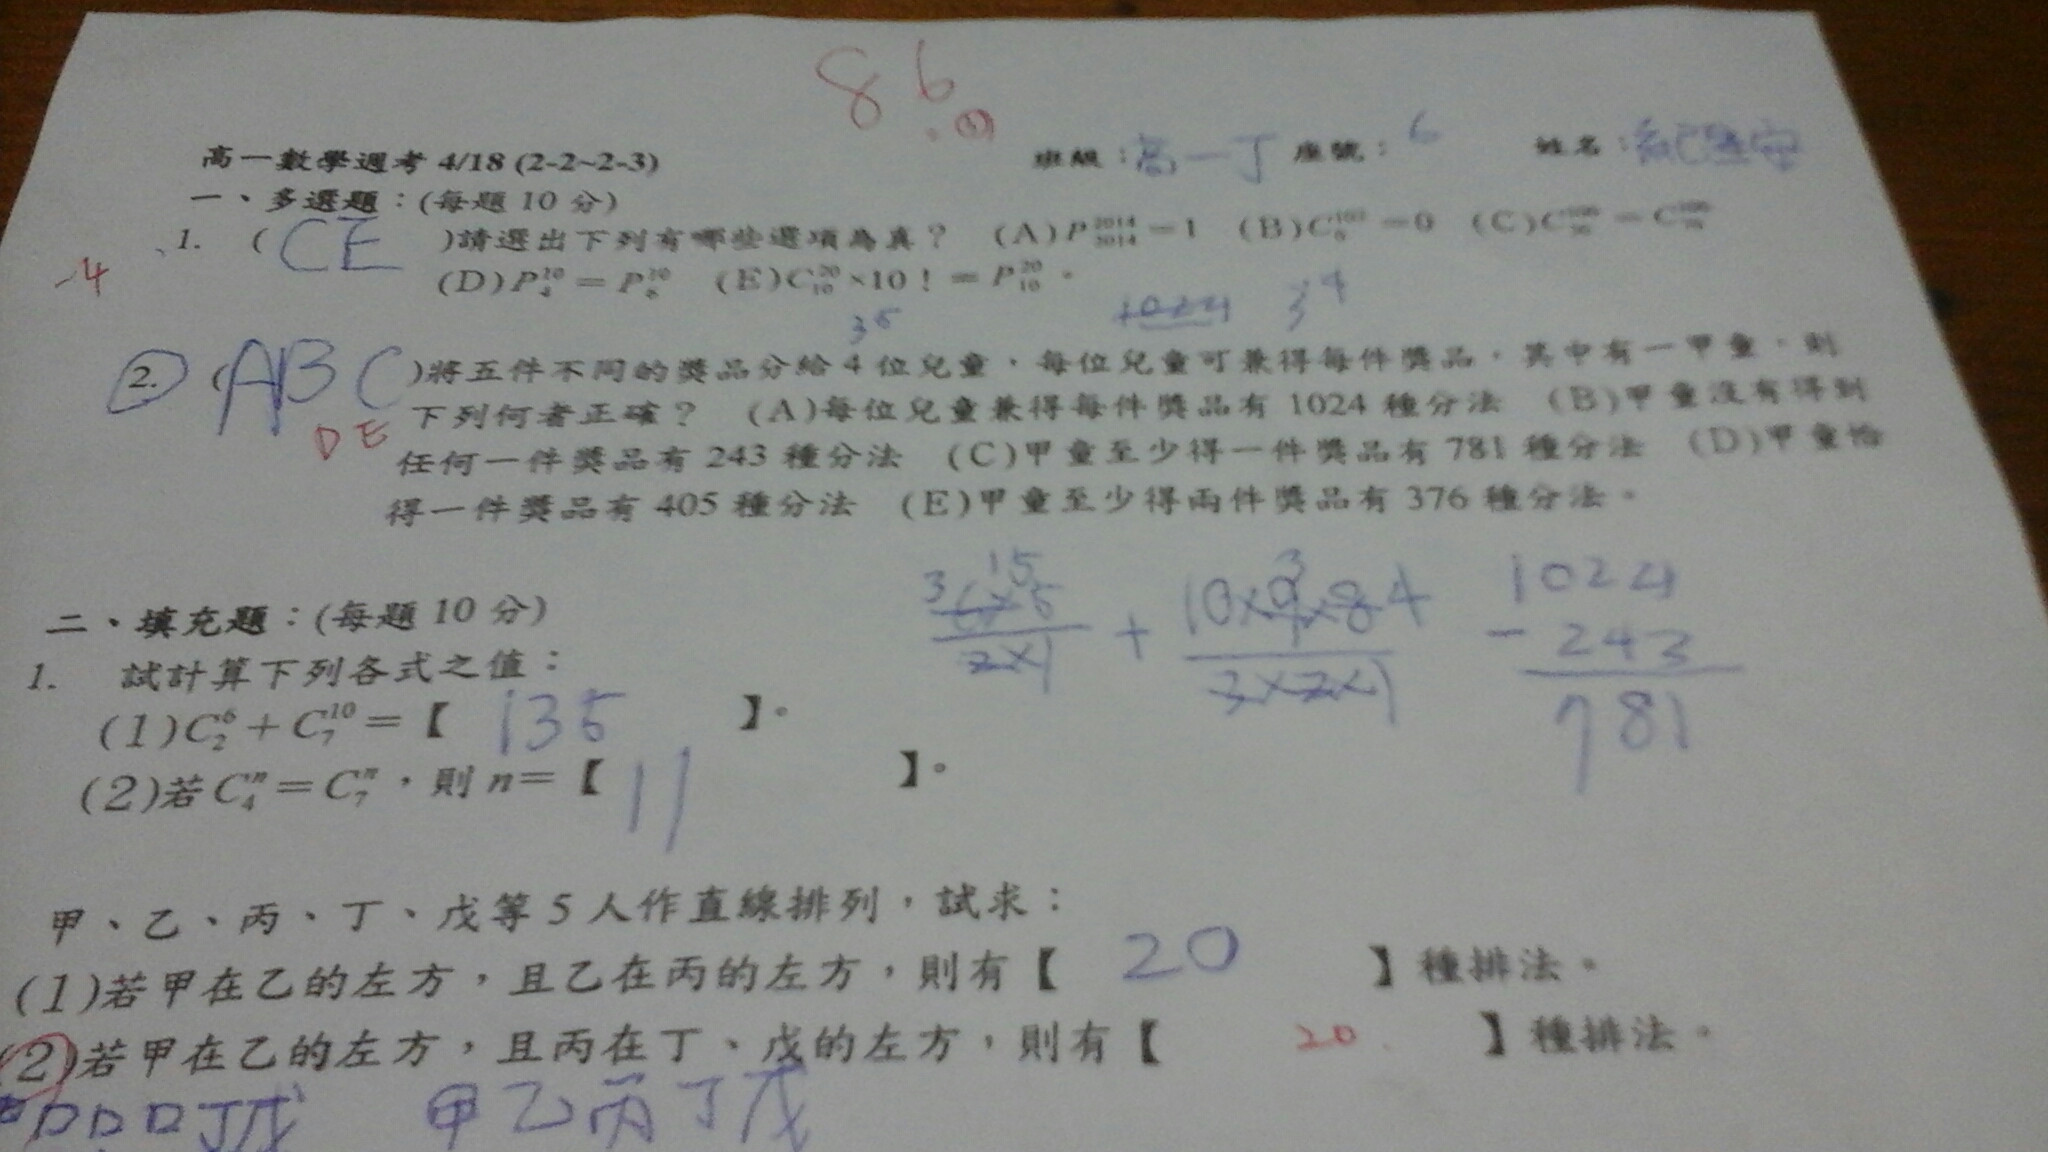 86
高一數學週考 4/18 (2-2~2-3) 班級：高一丁 座號：6 姓名：紀
一、多選題：(每題 10 分)
-4
1. ( CE )請選出下列有哪些選項為真？ (A)P^{2014}_{2014}=1 (B) =0 (C)
(D)P^{10}_{4}=P^{10}_{6} (E)C^{20}_{10}×10！=P^{20}_{10}。
3^5 1024 3^4
2. (ABC )將五件不同的獎品分給 4 位兒童，每位兒童可兼得每件獎品，其中有一甲童，則
DE 下列何者正確？ (A)每位兒童兼得每件獎品有 1024 種分法 (B)甲童沒有得到
任何一件獎品有 243 種分法 (C)甲童至少得一件獎品有 781 種分法 (D)甲童恰
得一件獎品有 405 種分法 (E)甲童至少得兩件獎品有 376 種分法。
二、填充題：(每題 10 分)
3 15 6×5 / 2×1 + 10×9×8 3 4 / 3×2×1 1024 - 243 781
1. 試計算下列各式之值：
(1)C^{6}_{2}+C^{10}_{7}=【 135 】。
(2)若 C^{n}_{4}=C^{n}_{7}，則 n=【 11 】。
甲、乙、丙、丁、戊等 5 人作直線排列，試求：
(1)若甲在乙的左方，且乙在丙的左方，則有【 20 】種排法。
(2)若甲在乙的左方，且丙在丁、戊的左方，則有【 20 】種排法。
口口口丁戊 甲乙丙丁戊